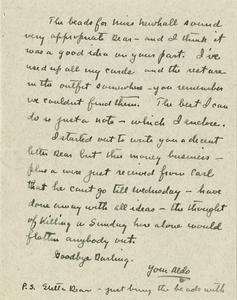 The beads for Miss Newhall sound
very appropriate Dear - and I think it
was a good idea on your part. I've
used up all my cards and the rest are
in the outfit somewhere - you remember
we couldn't find them. The best I can
do is just a note - which I enclose.
I started out to write you a decent
letter Dear but this money business -
plus a wire just received from Carl
that he can't go till Wednesday - have
done away with all ideas - the thought
of killing a Sunday here alone would
flatten anybody out.
Goodbye Darling.
Your Aldo
P.S. Estella Dear - just bring the beads with